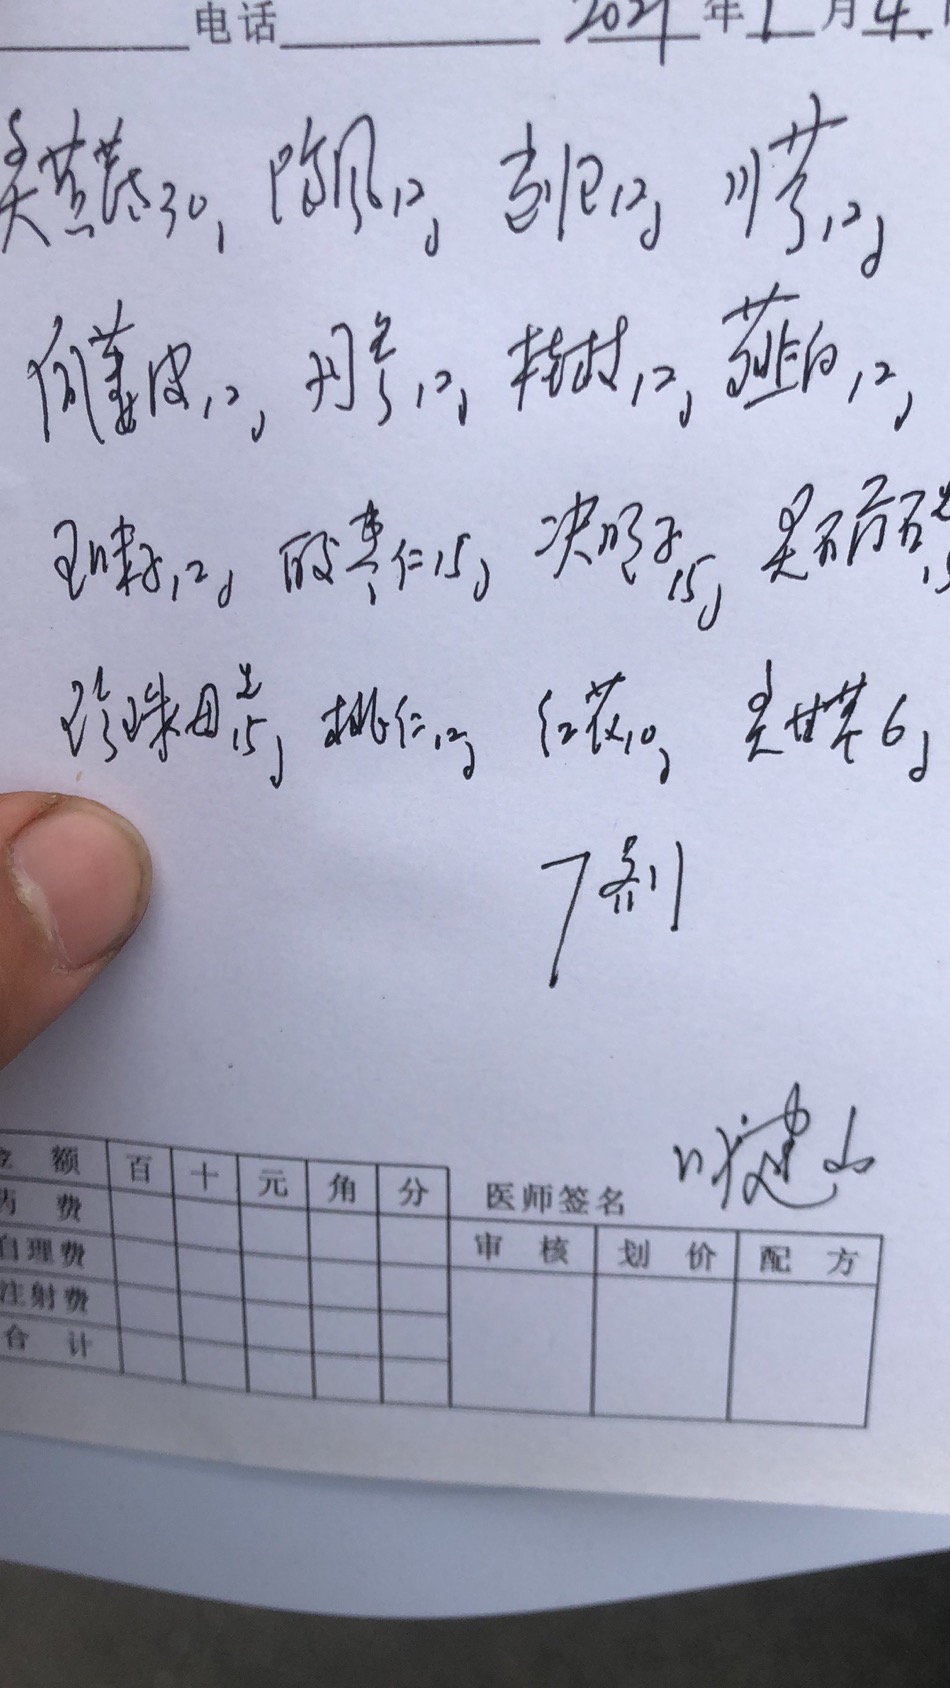 电话 2021年1月4
炙黄芪30g 防风12g 当归12g 川芎12g
丹参12g 桂枝12g 薤白12g
五味子12g 酸枣仁15g 决明子15g
珍珠母先15g 桃仁12g 红花10g 炙甘草6g
7剂
额 百 十 元 角 分
费 医师签名
自理费 审核 划价 配方
注射费
合计